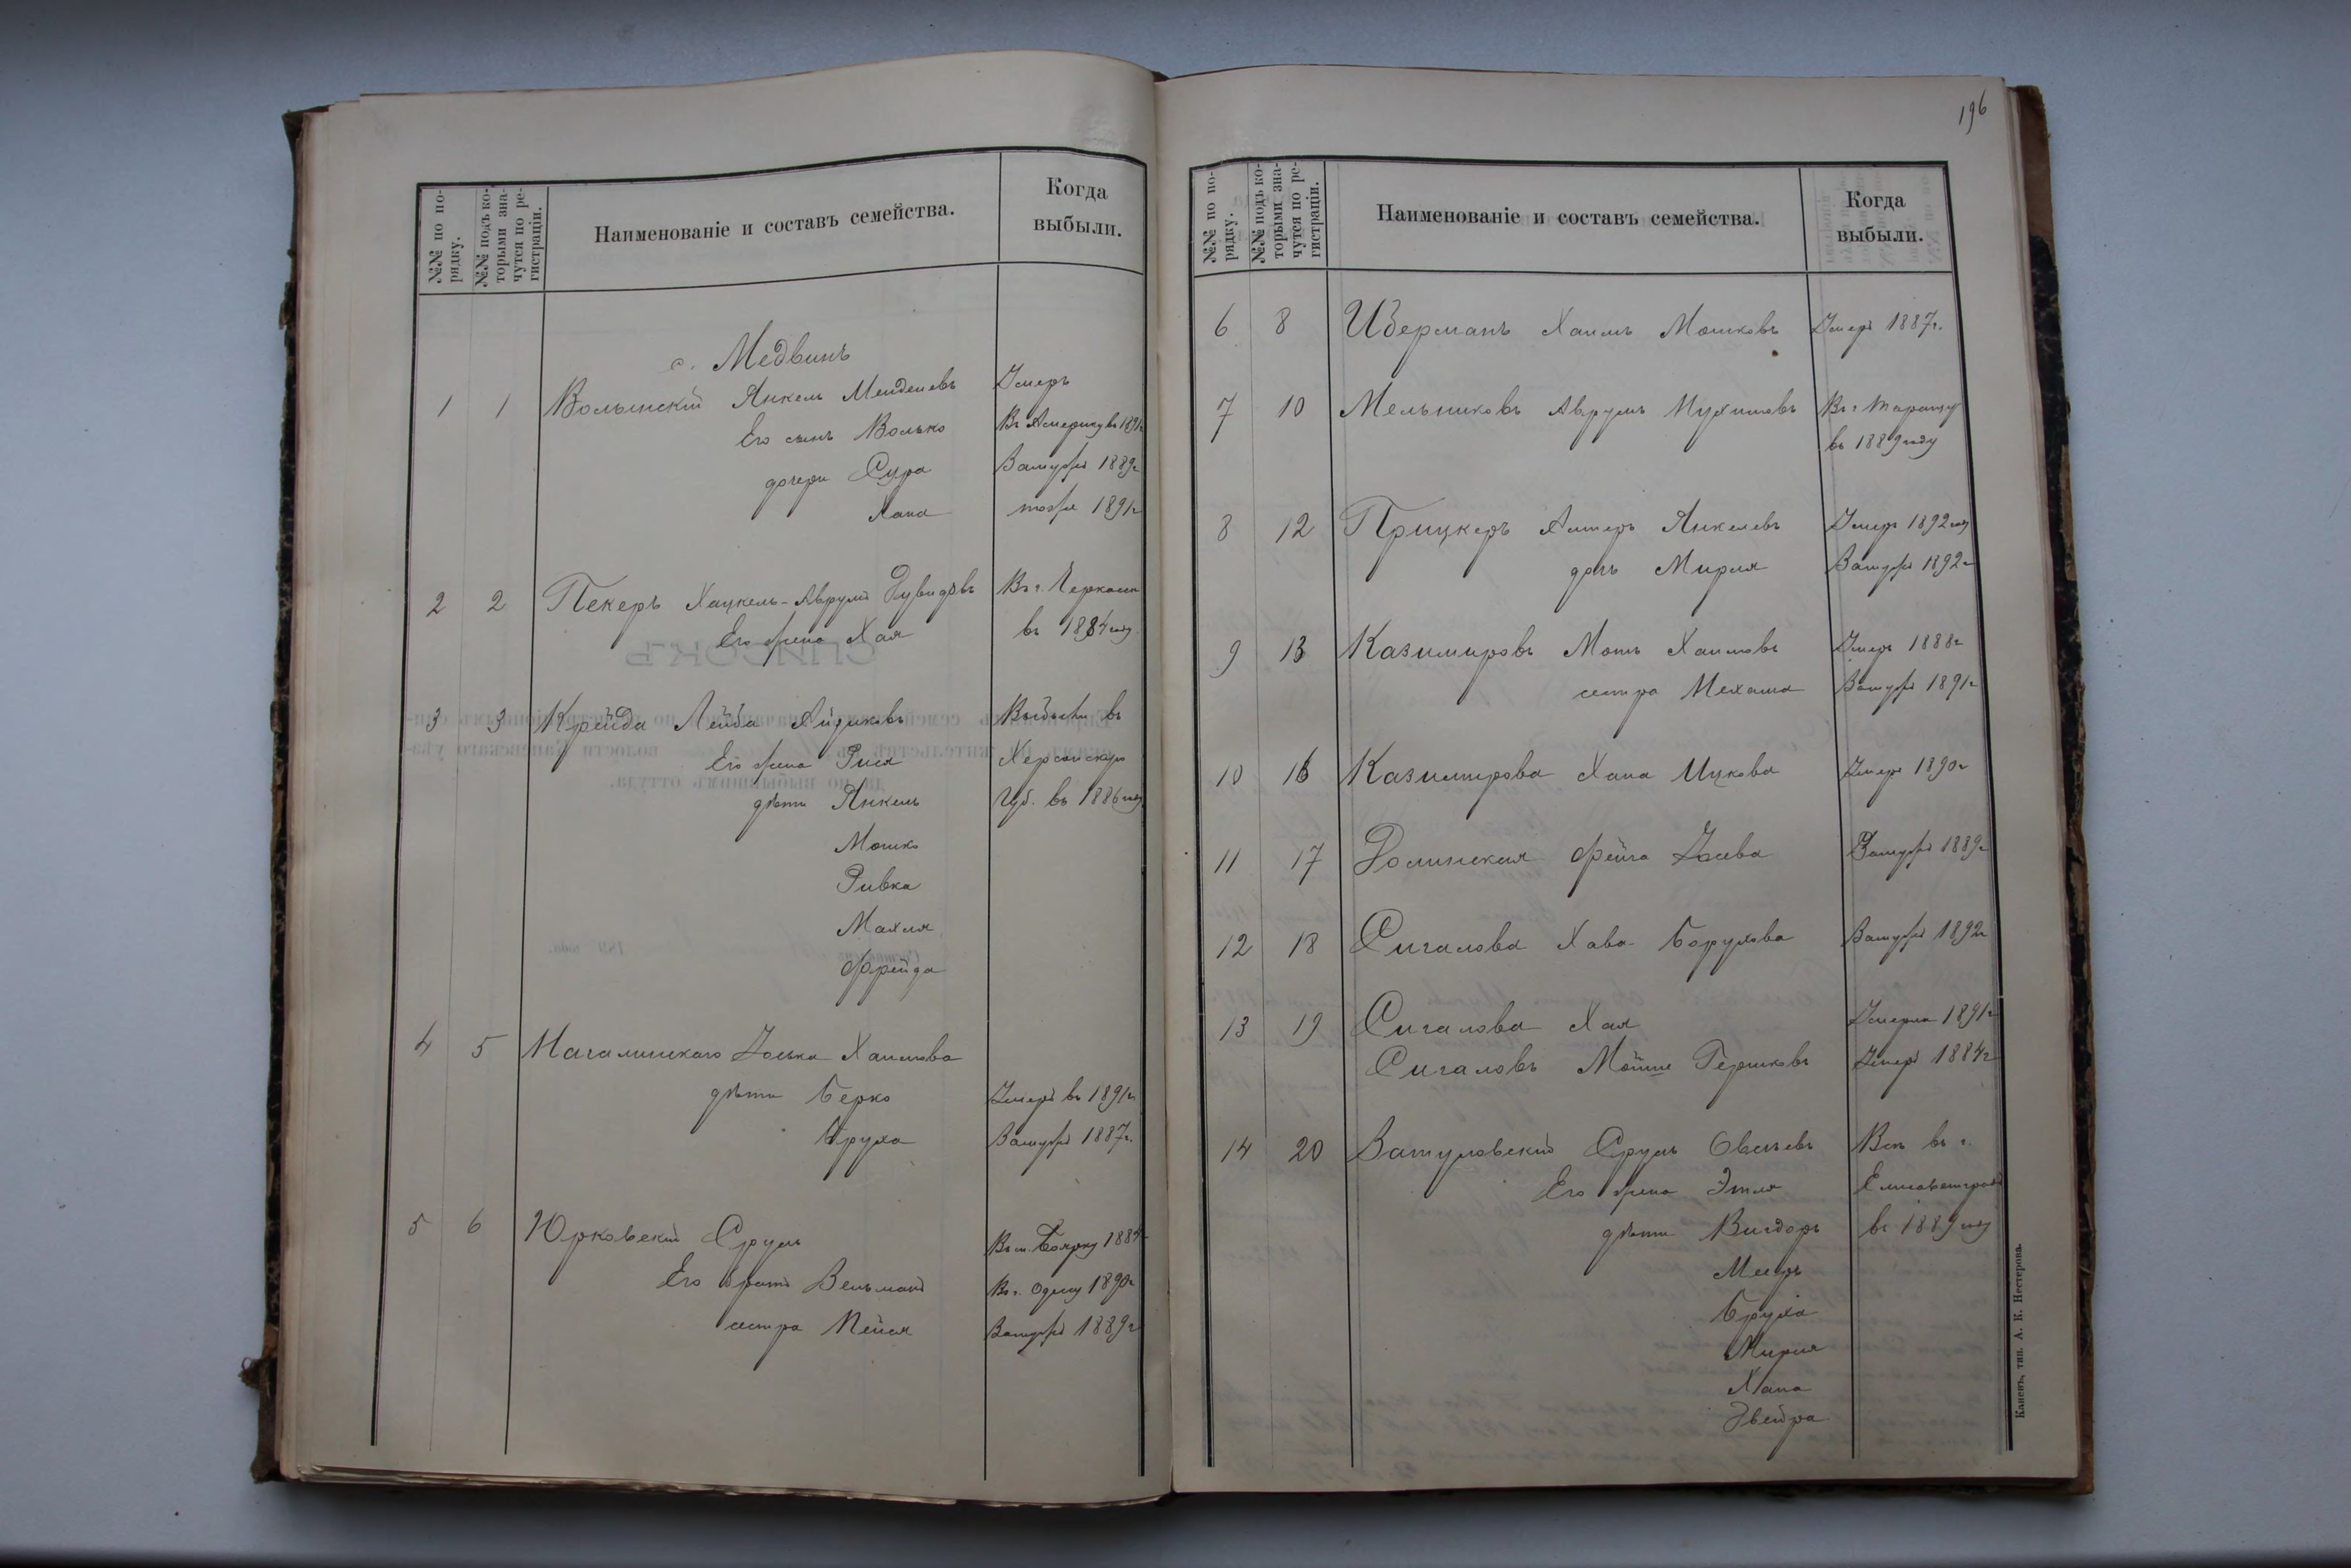 №№ по по-
рядку.
№№ подъ ко-
торыми зна-
чутся по ре-
гистраціи.
Наименованіе и составъ семейства.
Когда
выбыли.
с. Медвинъ
1 1 Волынскій Янкель Менделевъ Умеръ
Его сынъ Волько Въ Америку въ 1891г
дочери Сура Замужъ 1889г
Хана тоже 1891г
2 2 Пекеръ Хацкель-Аврумъ Дувидовъ Въ г. Черкассы
Его жена Хая въ 1884 году
3 3 Крейда Лейба Айзиковъ Выбыли въ
Его жена Рися Херсонскую
дѣти Янкель Губ. въ 1886 году
Мошко
Ривка
Махля
Фрейда
4 5 Магалинскаго Іоська Хаимова
дѣти Берко Умеръ въ 1891г
Бруха Замужъ 1887г.
5 6 Юрковскій Сруль Въ м. Боярку 1884
Его братъ Вельманъ Въ г. Одессу 1890г
сестра Пейся Замужъ 1889г
196
№№ по по-
рядку.
№№ подъ ко-
торыми зна-
чутся по ре-
гистраціи.
Наименованіе и составъ семейства.
Когда
выбыли.
6 8 Иберманъ Хаимъ Мошковъ Умеръ 1887г.
7 10 Мельниковъ Аврумъ Нухимовъ Въ г. Таращу
въ 1889 году
8 12 Прицкеръ Алтеръ Янкелевъ Умеръ 1892 году
дочь Мирля Замужъ 1892г
9 13 Казимировъ Мотъ Хаимовъ Умеръ 1888г
сестра Мехама Замужъ 1891г
10 16 Казимирова Хана Ицкова Умеръ 1890г
11 17 Долинская Фейга Іосева Замужъ 1889г
12 18 Сигалова Хава Борухова Замужъ 1892г
13 19 Сигалова Хая Умерла 1891г
Сигаловъ Мойше Гершковъ Умеръ 1884г
14 20 Ватуловскій Сруль Овсѣевъ Всѣ въ г.
Его жена Этля Елисаветградъ
дѣти Вигдоръ въ 1889 году
Меиръ
Бруха
Мирля
Хана
Двейра
Каневъ, тип. А. К. Нестерова.